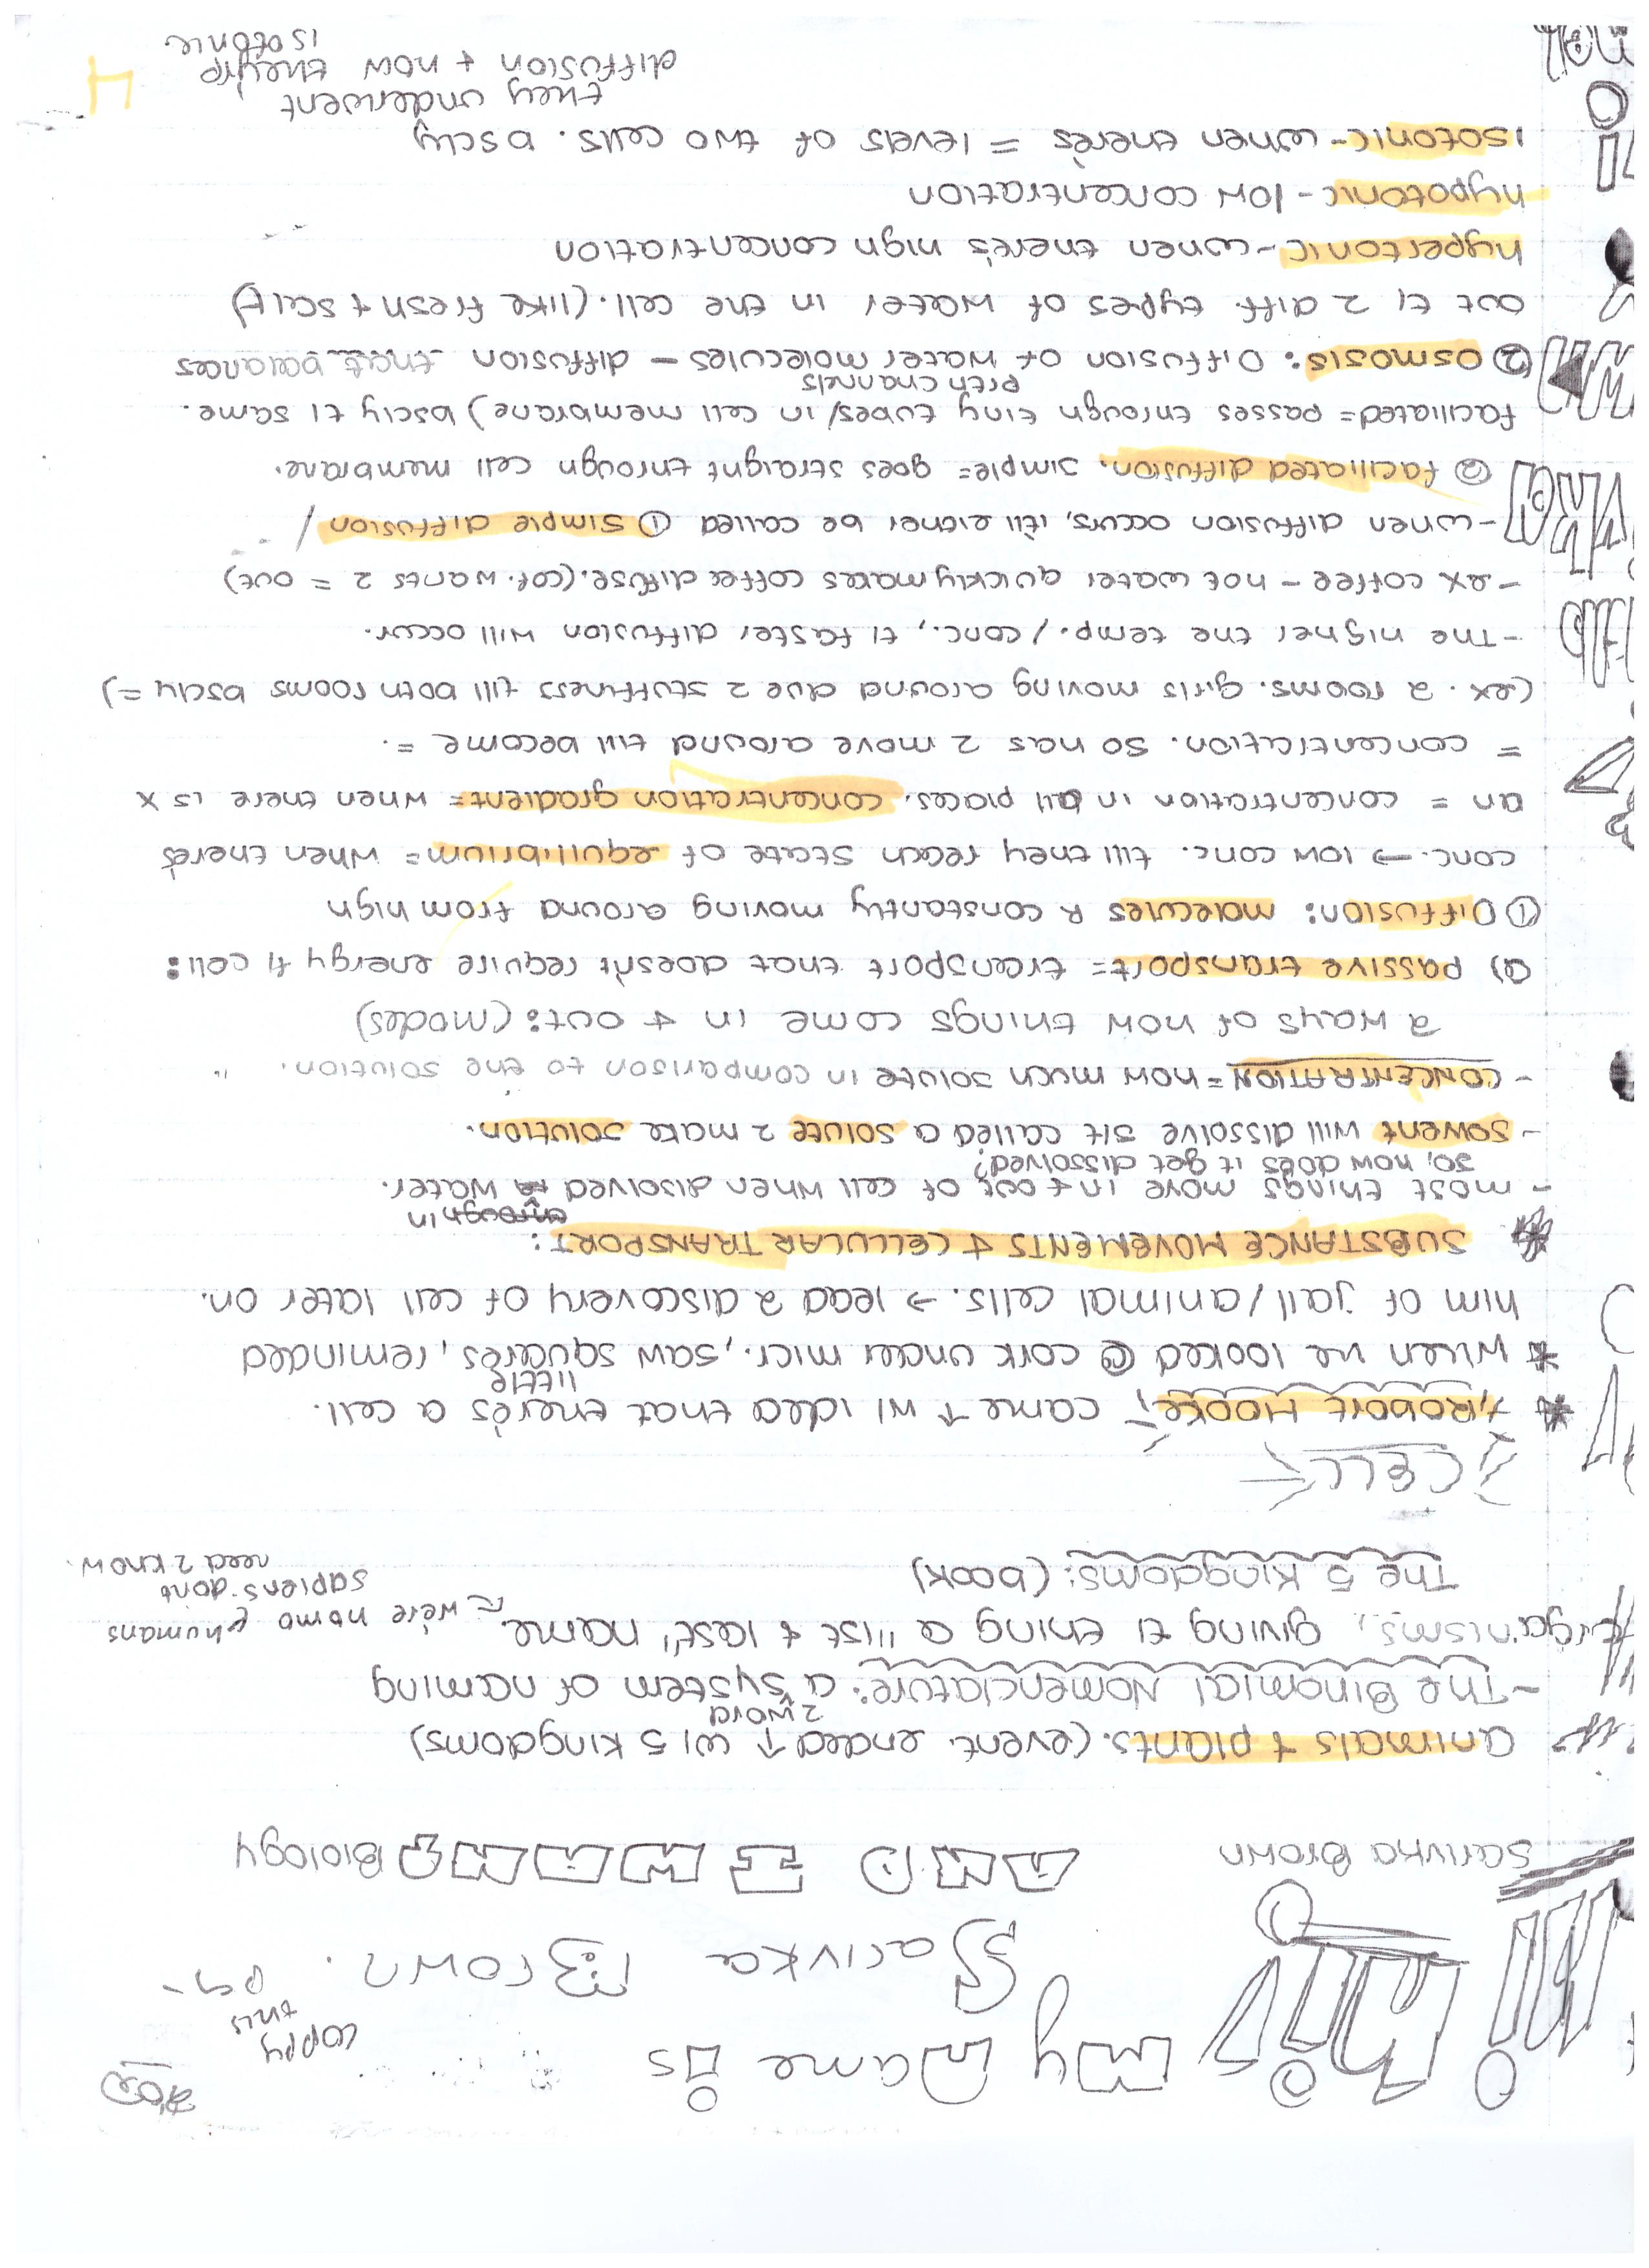 My Name is
coppy
this
pg-
Sarivka Brown.
Sarivka Brown
Biology
animals + plants. (event. ended ↑ w/ 5 kingdoms)
2 word
-The Binomial Nomenclature: a system of naming
organisms, giving t1 thing a "1st & last" name.
we're homo
sapiens.
humans
dont
need 2 know.
The 5 Kingdoms: (book)
CELL
* Robort Hooke: came ↑ w/ idea that there's a cell.
little
* When he looked @ cork under micr., saw squares, reminded
him of jail/animal cells. → lead 2 discovery of cell later on.
* SUBSTANCE MOVEMENTS & CELLULAR TRANSPORT:
through in
- most things move in + out of cell when disolved water.
so, how does it get dissolved?
- solvent will dissolve s/t called a solute 2 make solution.
- CONCENTRATION = how much solute in comparison to the solution.
2 ways of how things come in & out: (modes)
a) passive transport = transport that doesn't require energy f1 cell:
① Diffusion: molecules R constantly moving around from high
conc. → low conc. till they reach state of equilibrium = when there's
an = concentration in all places. concentration gradient = when there is x
= concentration. so has 2 move around till become =.
(ex. 2 rooms. girls moving around due 2 stuffiness till both rooms bscly =)
-The higher the temp./conc., t1 faster diffusion will occur.
-ex coffee - hot water quickly makes coffee diffuse. (cof. wants 2 = out)
-when diffusion occurs, it'll either be called ① simple diffusion /
② faciliated diffusion. simple = goes straight through cell membrane.
faciliated = passes through tiny tubes/ in cell membrane) bscly t1 same.
prtn channels
② osmosis: Diffusion of water molecules - diffusion that balances
out t1 2 diff. types of water in the cell. (like fresh & salt)
hypertonic - when there's high concentration
hypotonic - low concentration
isotonic - when there's = levels of two cells. bscly
they underwent
diffusion + now they're
isotonic
4